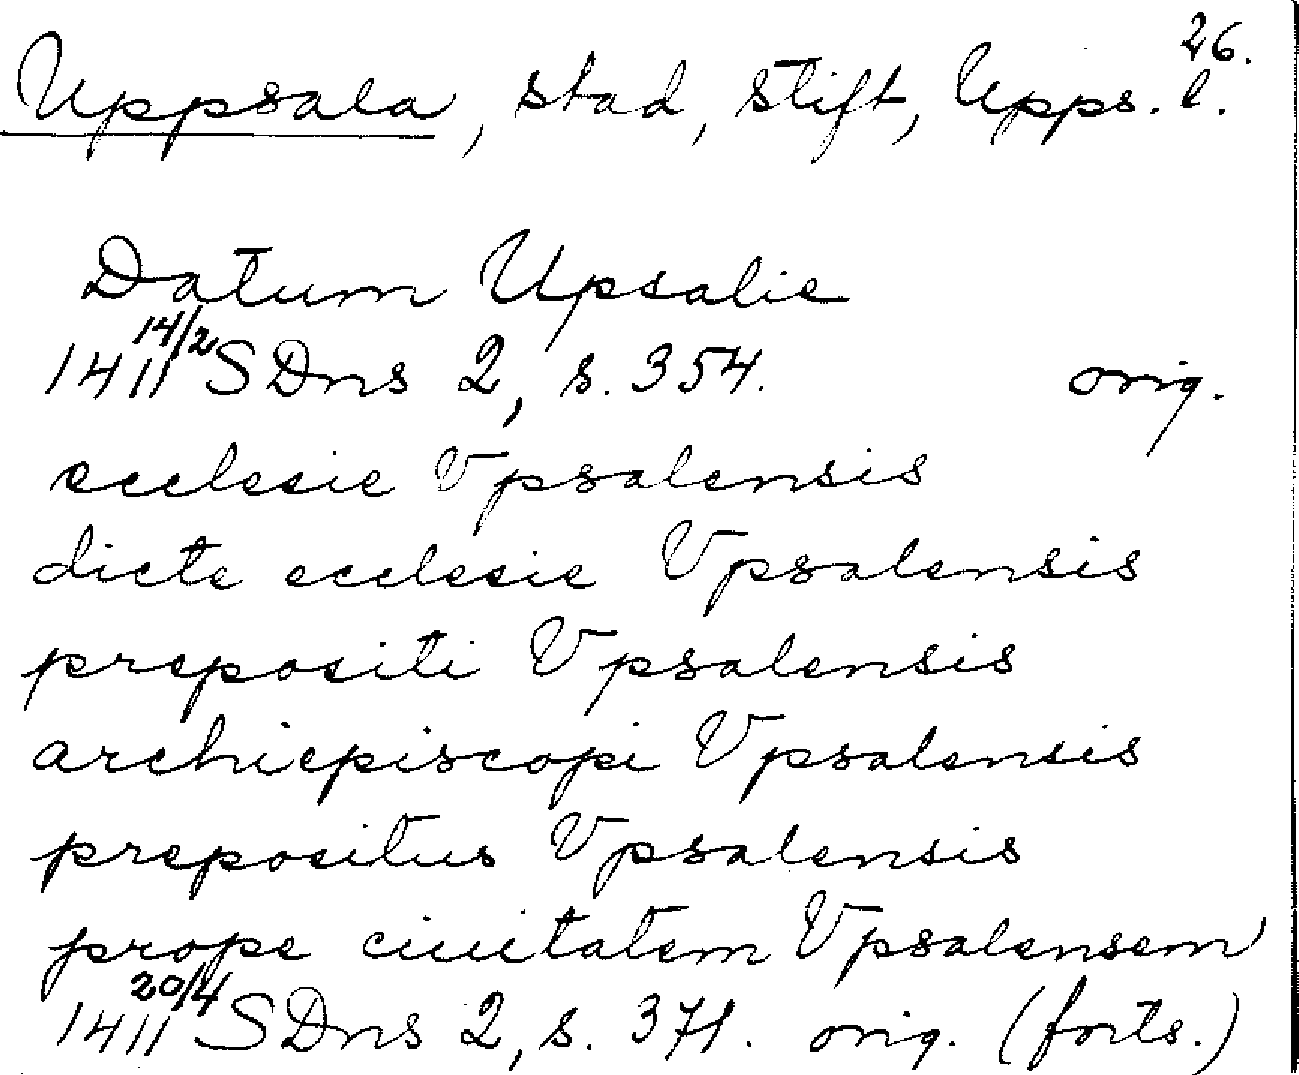 26.
Uppsala, stad, stift, Upps. l.
Datum Upsalie
1411 14/2 SDns 2, s. 354. orig.
ecclesie Vpsalensis
dicte ecclesie Vpsalensis
prepositi Vpsalensis
archiepiscopi Vpsalensis
prepositus Vpsalensis
prope ciuitatem Vpsalensem
1411 20/4 SDns 2, s. 371. orig. (forts.)